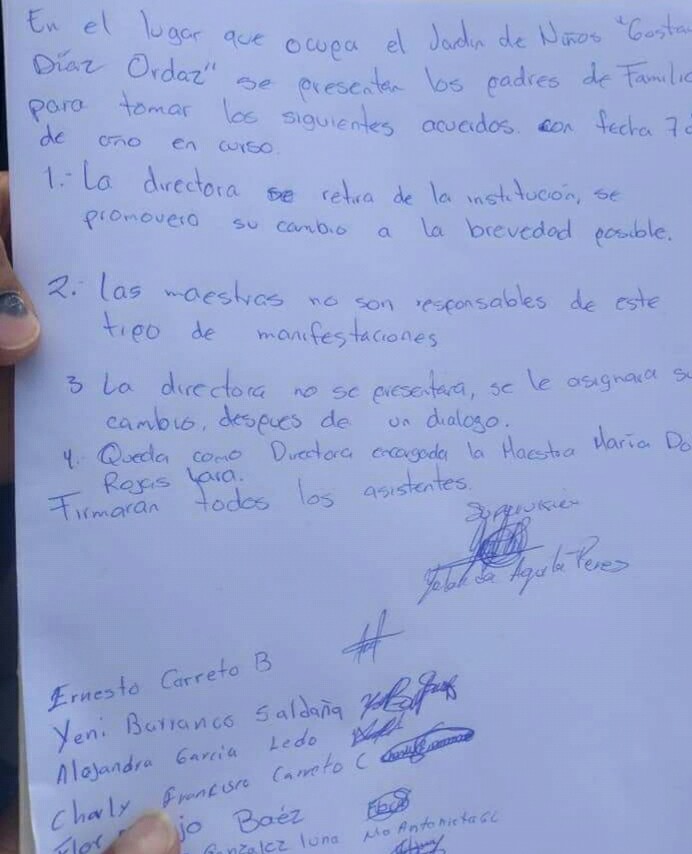 En el lugar que ocupa el Jardin de Niños "Gusta
Díaz Ordaz" se presentan los padres de Familia
para tomar los siguientes acuerdos con fecha 7 d
de año en curso.
1.- La directora se retira de la institución, se
promovera su cambio a la brevedad posible.
2.- las maestras no son responsables de este
tipo de manifestaciones
3 La directora no se presentara, se le asignara su
cambio, despues de un dialogo.
4. Queda como Directora encargada la Maestra Maria Do
Rojas Lara.
Firmaran todos los asistentes.
Supervision
Yolanda Aguila Perez
Ernesto Carreto B
Yeni Barranco Saldaña
Alejandra Garcia Ledo
Charly Francisco Carreto C
Flor jo Baéz
Gonzalez luna Ma Antonieta GL